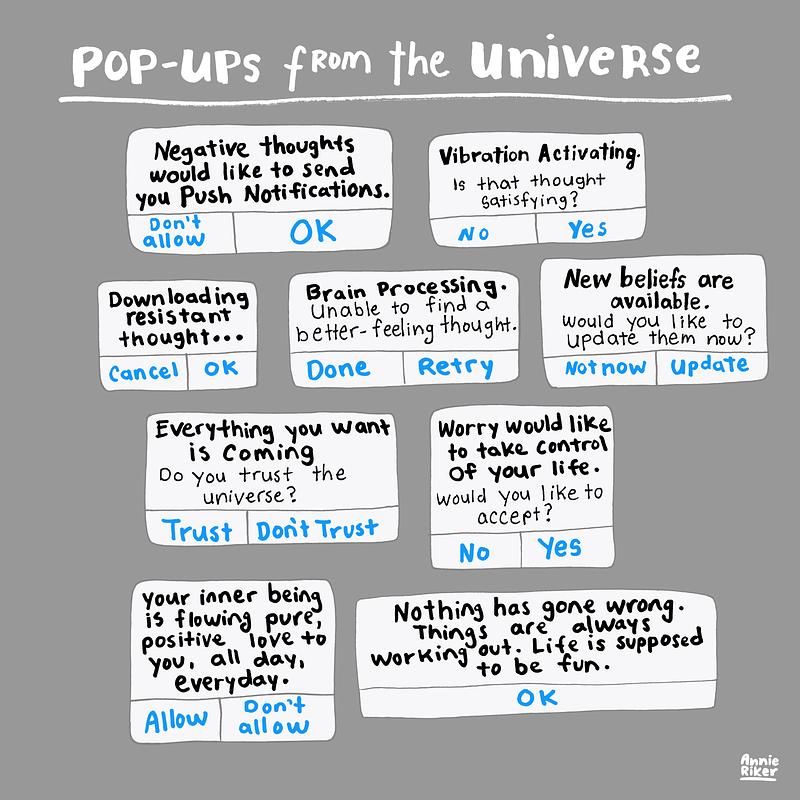 POP-UPS from the UNIVERSE
Negative thoughts
would like to send
you Push Notifications.
Don't
allow
OK
Vibration Activating.
Is that thought
satisfying?
No
Yes
Downloading
resistant
thought...
Cancel
OK
Brain Processing.
Unable to find a
better-feeling thought.
Done
Retry
New beliefs are
available.
would you like to
update them now?
Not now
Update
Everything you want
is Coming
Do you trust the
universe?
Trust
Don't Trust
Worry would like
to take control
of your life.
would you like to
accept?
No
Yes
your inner being
is flowing pure,
positive love to
you, all day,
everyday.
Allow
Don't
allow
Nothing has gone wrong.
Things are always
working out. Life is supposed
to be fun.
OK
Annie
Riker